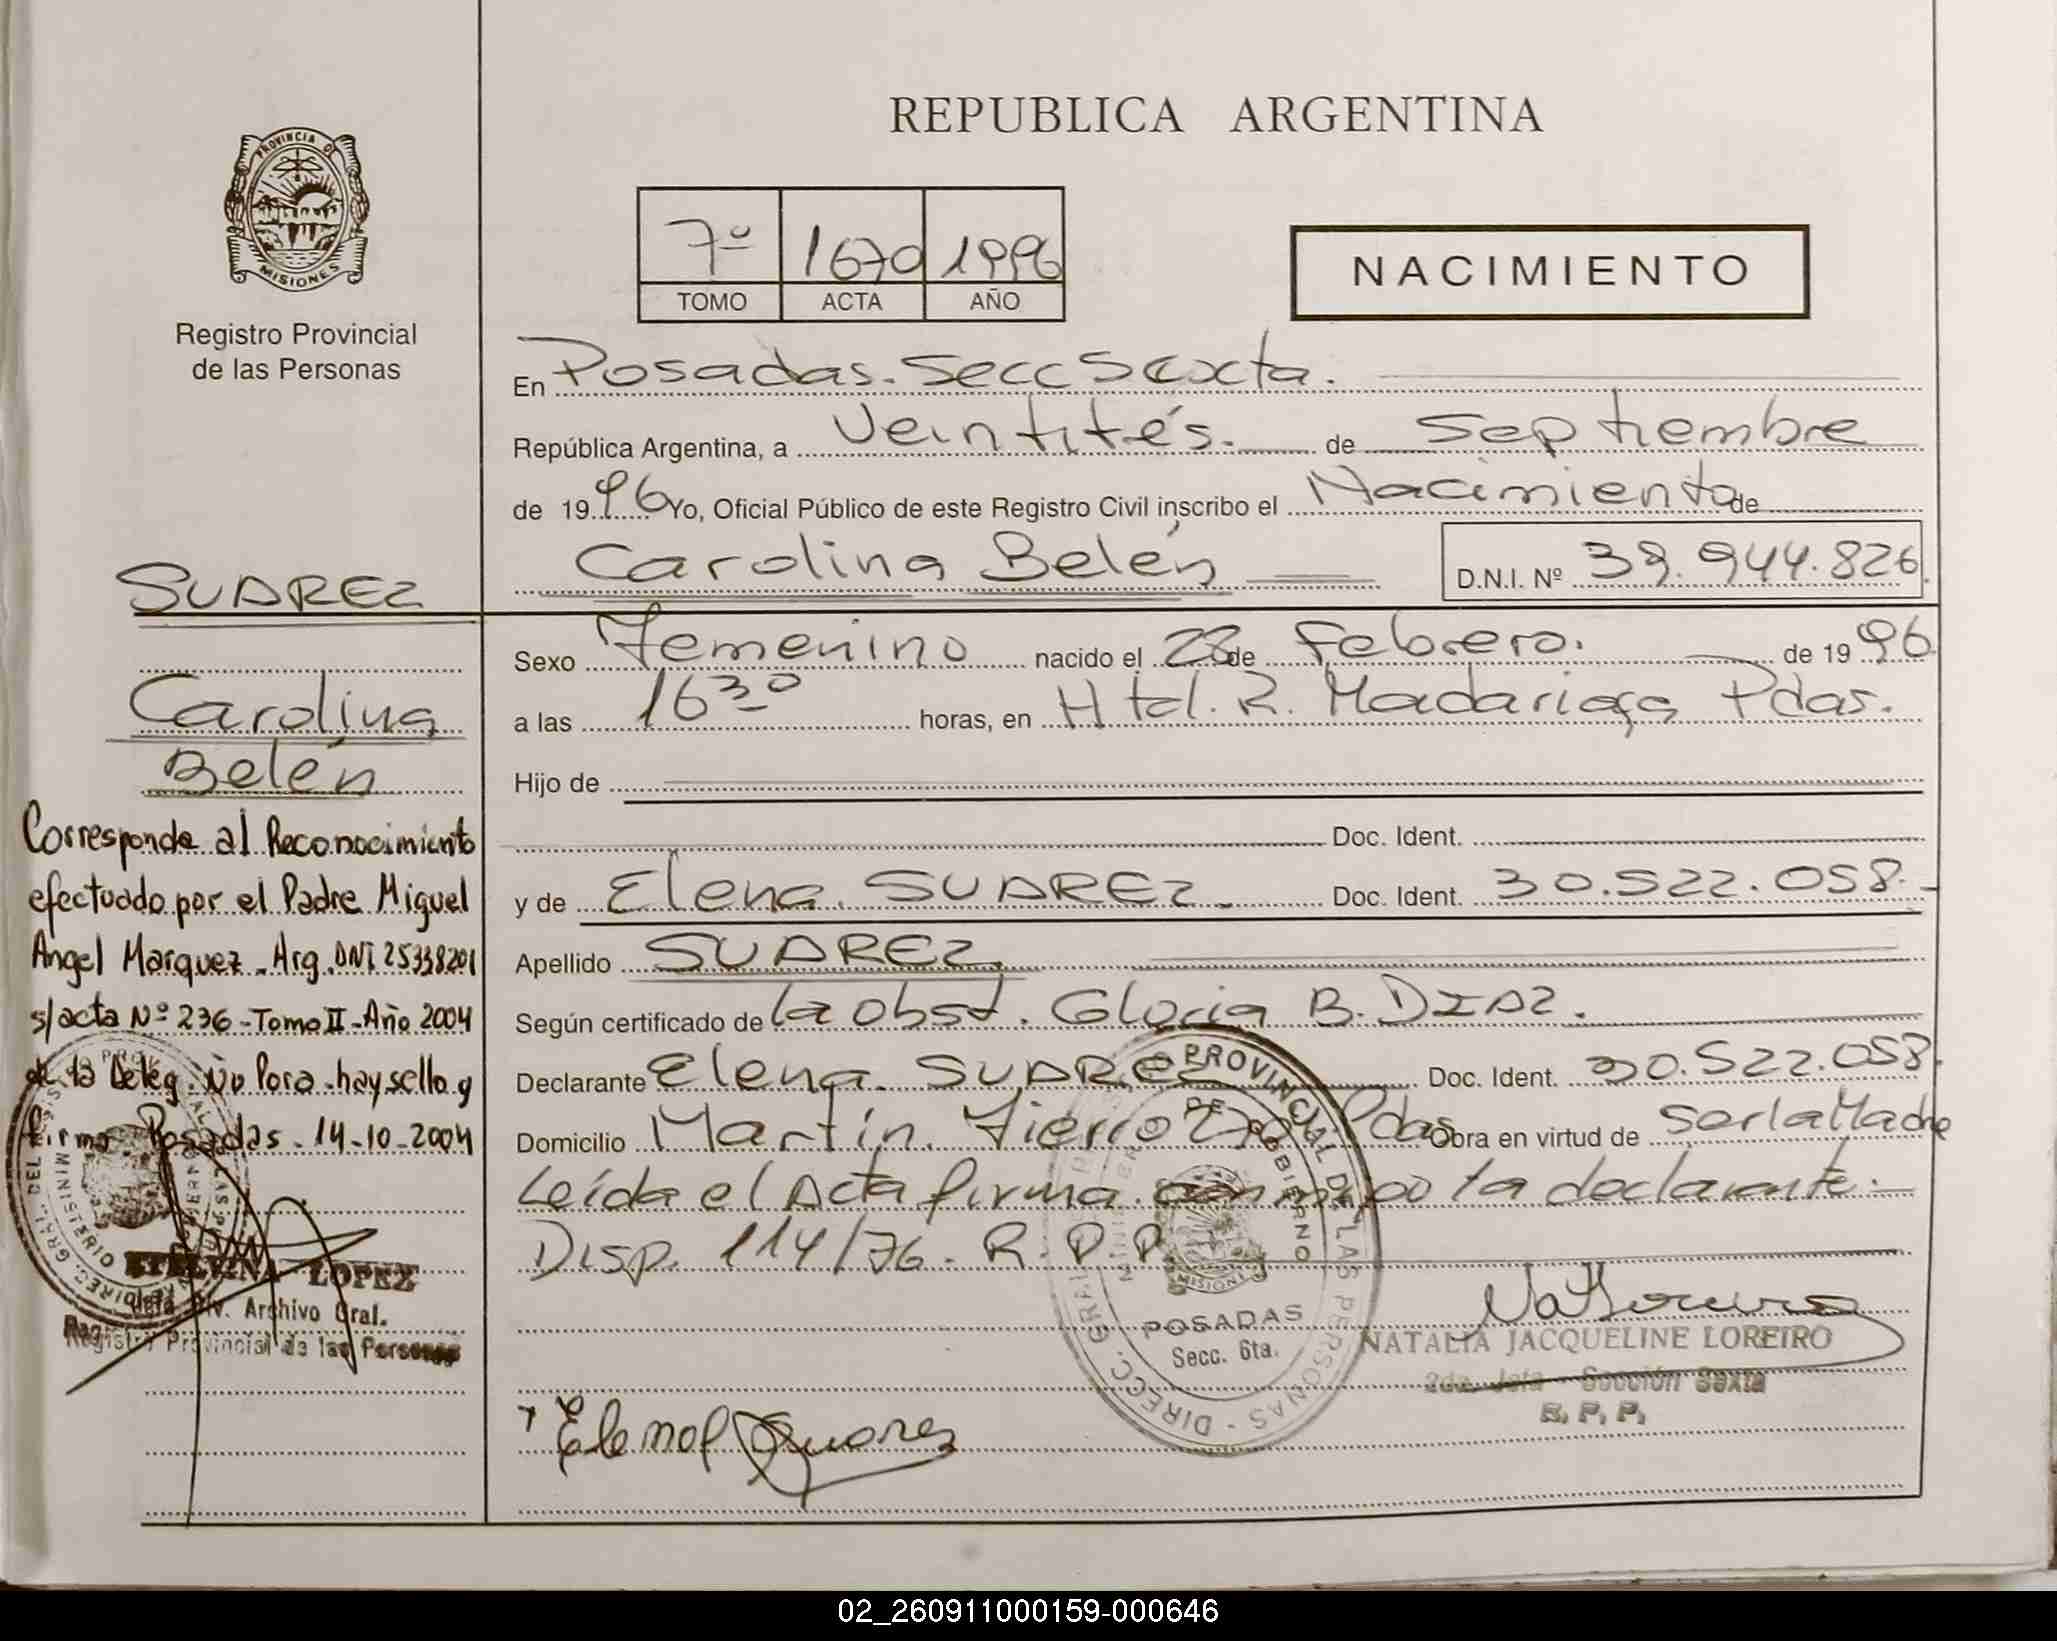 REPUBLICA ARGENTINA
PROVINCIA DE
MISIONES
Registro Provincial
de las Personas
7º 1670 1996
TOMO ACTA AÑO
NACIMIENTO
En Posadas. Secc Sexta.
República Argentina, a Veintités. de Septiembre
de 1996 Yo, Oficial Público de este Registro Civil inscribo el Nacimiento de
Carolina Belén
D.N.I. Nº 39.944.826
Sexo Femenino nacido el 28 de Febrero. de 1996
a las 16 30 horas, en Htal. R. Madariaga Pdas.
Hijo de
Doc. Ident.
y de Elena. SUAREZ. Doc. Ident. 30.522.058.
Apellido SUAREZ
Según certificado de la obst. Gloria B. DIAZ.
Declarante Elena. SUAREZ Doc. Ident. 30.522.058.
Domicilio Martín. Fierro Pdas Obra en virtud de ser la Madre
Leída el Acta firma la declarante.
Disp. 114/76. R.P.P
NATALIA JACQUELINE LOREIRO
2da. Jefa - Sección Sexta
R. P. P.
Elena Suarez
POSADAS
Secc. 6ta.
SUAREZ
Carolina
Belén
Corresponde al Reconocimiento
efectuado por el Padre Miguel
Angel Marquez. Arg. DNI 25338201
s/acta Nº 236-Tomo II-Año 2004
de la Deleg. Ñu Pora. hay sello y
firma Posadas. 14-10-2004
LOPEZ
Jefa Div. Archivo Gral.
Registro Provincial de las Personas
02_260911000159-000646